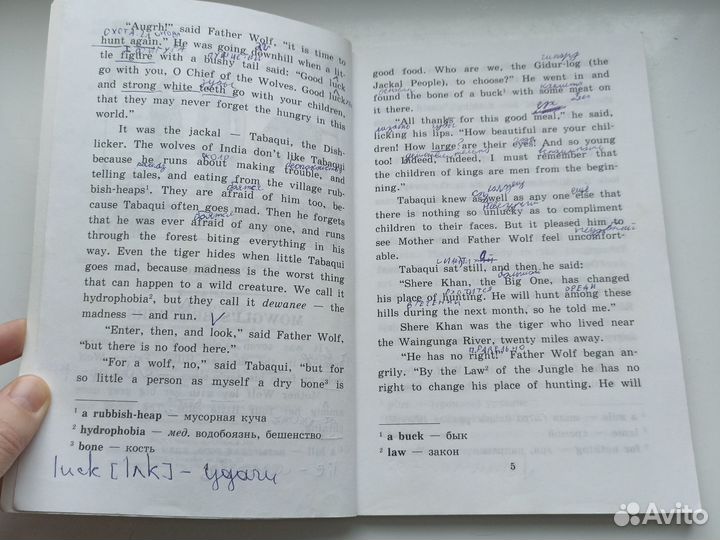 "Augrh!" said Father Wolf, "it is time to
hunt again." He was going downhill when a lit-
tle figure with a bushy tail said: "Good luck
go with you, O Chief of the Wolves. Good luck
and strong white teeth go with your children,
that they may never forget the hungry in this
world."
It was the jackal — Tabaqui, the Dish-
licker. The wolves of India don't like Tabaqui
because he runs about making trouble, and
telling tales, and eating from the village rub-
bish-heaps¹. They are afraid of him too, be-
cause Tabaqui often goes mad. Then he forgets
that he was ever afraid of any one, and runs
through the forest biting everything in his
way. Even the tiger hides when little Tabaqui
goes mad, because madness is the worst thing
that can happen to a wild creature. We call it
hydrophobia², but they call it dewanee — the
madness — and run.
"Enter, then, and look," said Father Wolf,
"but there is no food here."
"For a wolf, no," said Tabaqui, "but for
so little a person as myself a dry bone³ is
¹ a rubbish-heap — мусорная куча
² hydrophobia — мед. водобоязнь, бешенство
³ bone — кость
luck [lʌk] - удачи
good food. Who are we, the Gidur-log (the
Jackal People), to choose?" He went in and
found the bone of a buck¹ with some meat on
it there.
"All thanks for this good meal," he said,
licking his lips. "How beautiful are your chil-
dren! How large are their eyes! And so young
too! Indeed, indeed, I must remember that
the children of kings are men from the begin-
ning."
Tabaqui knew as well as any one else that
there is nothing so unlucky as to compliment
children to their faces. But it pleased him to
see Mother and Father Wolf feel uncomfort-
able.
Tabaqui sat still, and then he said:
"Shere Khan, the Big One, has changed
his place of hunting. He will hunt among these
hills during the next month, so he told me."
Shere Khan was the tiger who lived near
the Waingunga River, twenty miles away.
правельно
"He has no right!" Father Wolf began an-
grily. "By the Law² of the Jungle he has no
right to change his place of hunting. He will
¹ a buck — бык
² law — закон
5
Avito